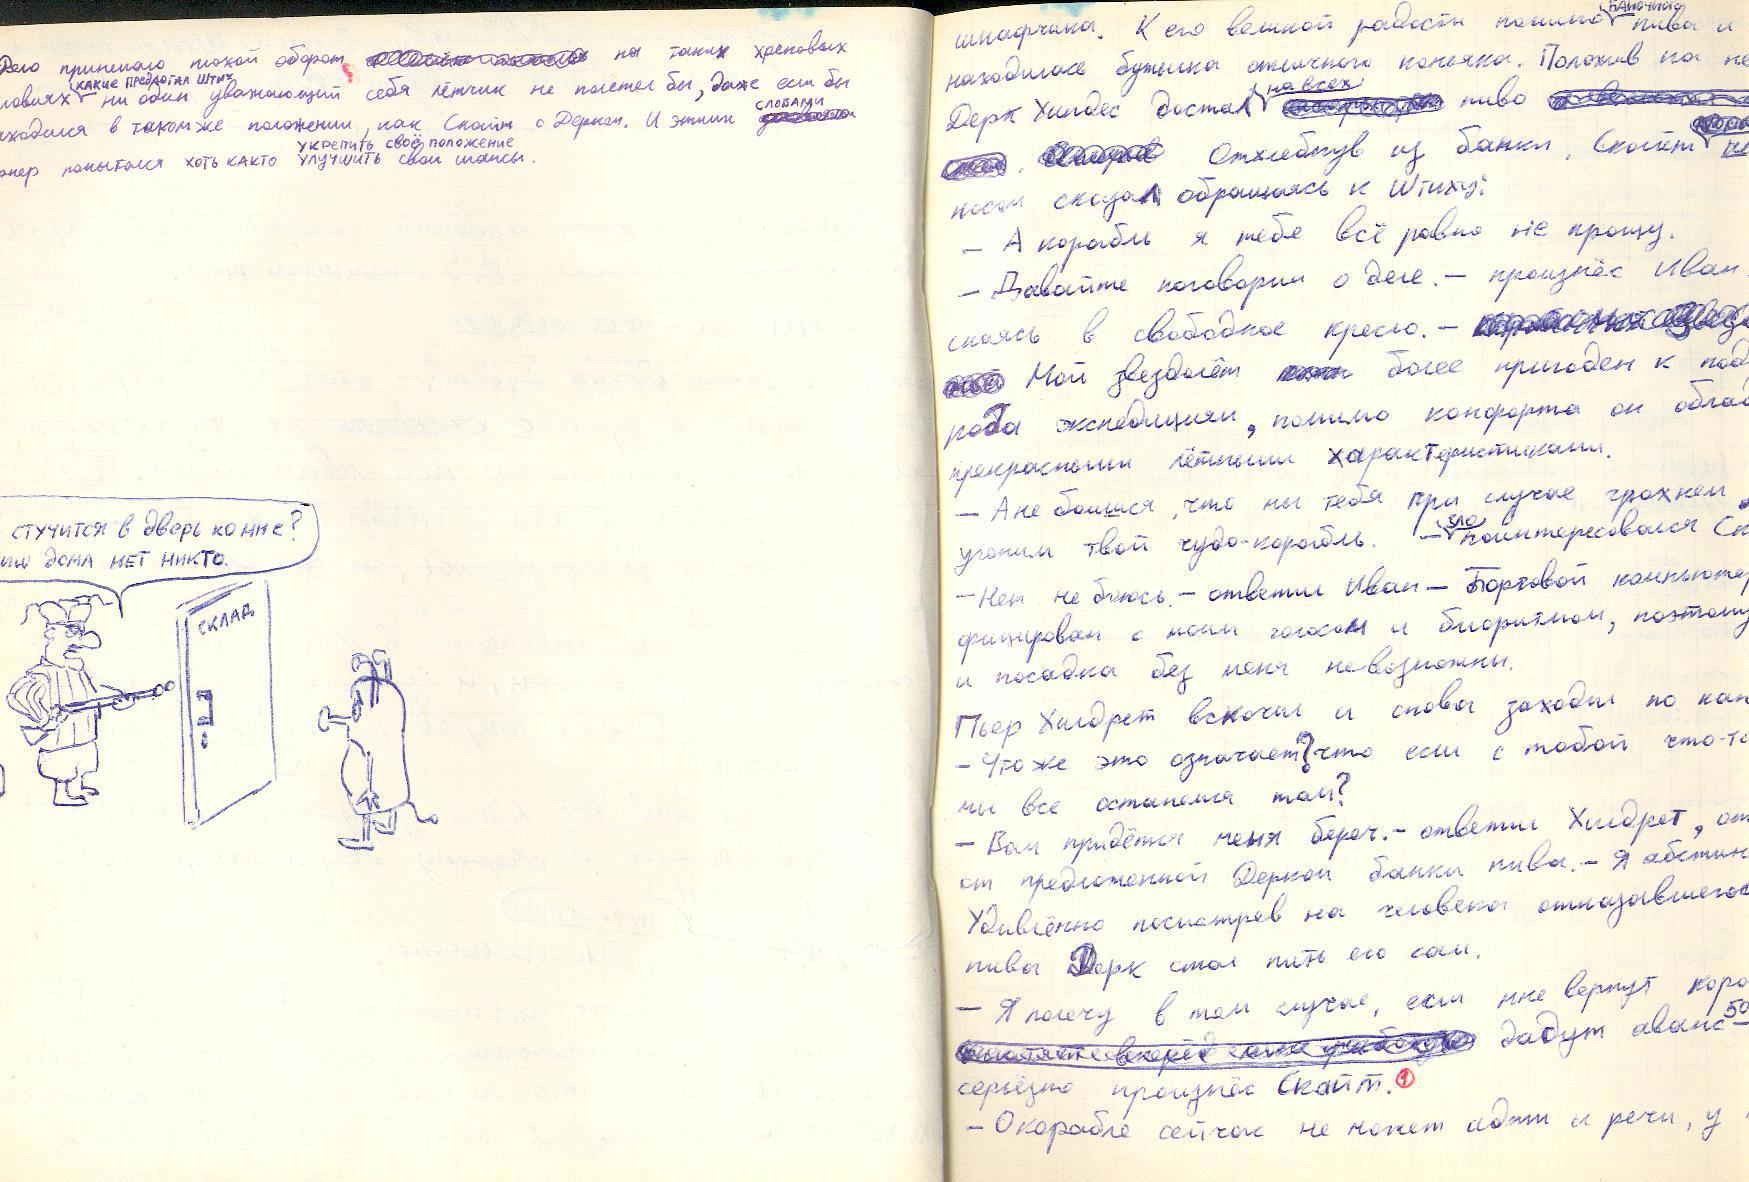 Дело принимало плохой оборот, на таких хреновых
ловиях какие предлогал Штих ни один уважающий себя лётчик не полетел бы, даже если бы
находился в таком же положении, как Скайт с Дерком. И этими словами
попытался хоть както укрепить своё положение улучшить свои шансы.
стучится в дверь ко мне?
дома нет никто.
СКЛАД
шкафчика. К его великой радости помимо баночного пива и
находилась бутылка отличного коньяка. Положив на
Дерк Хилдес достал на всех пиво
Отхлебнув из банки, Скайт
носом сказал обращаясь к Штиху:
– А корабль я тебе всё равно не прощу.
– Давайте поговорим о деле. – произнёс Иван
скаясь в свободное кресло. –
Мой звездолёт более пригоден к под
рода экспедициям, помимо комфорта он облад
прекрасными лётными характеристиками.
– А не боишся, что мы тебя при случае грохнем
угоним твой чудо-корабль. – зло поинтересовался Ск
– Нет не боюсь. – ответил Иван – Бортовой компьютер
фицирован с моим голосом и биоритмом, поэтому
и посадка без меня невозможны.
Пьер Хилдрет вскочил и снова заходил по ка
– Что же это означает? что если с тобой что-то
мы все останемся там?
– Вам придётся меня береч. – ответил Хилдрет, от
от предложенной Дерком банки пива. – Я абстин
Удивлённо посмотрев на человека отказавшегося
пива Дерк стал пить его сам.
– Я полечу в том случае, если мне вернут кора
дадут аванс 50
серьёзно произнёс Скайт. 1
– О корабле сейчас не может идти и речи, у